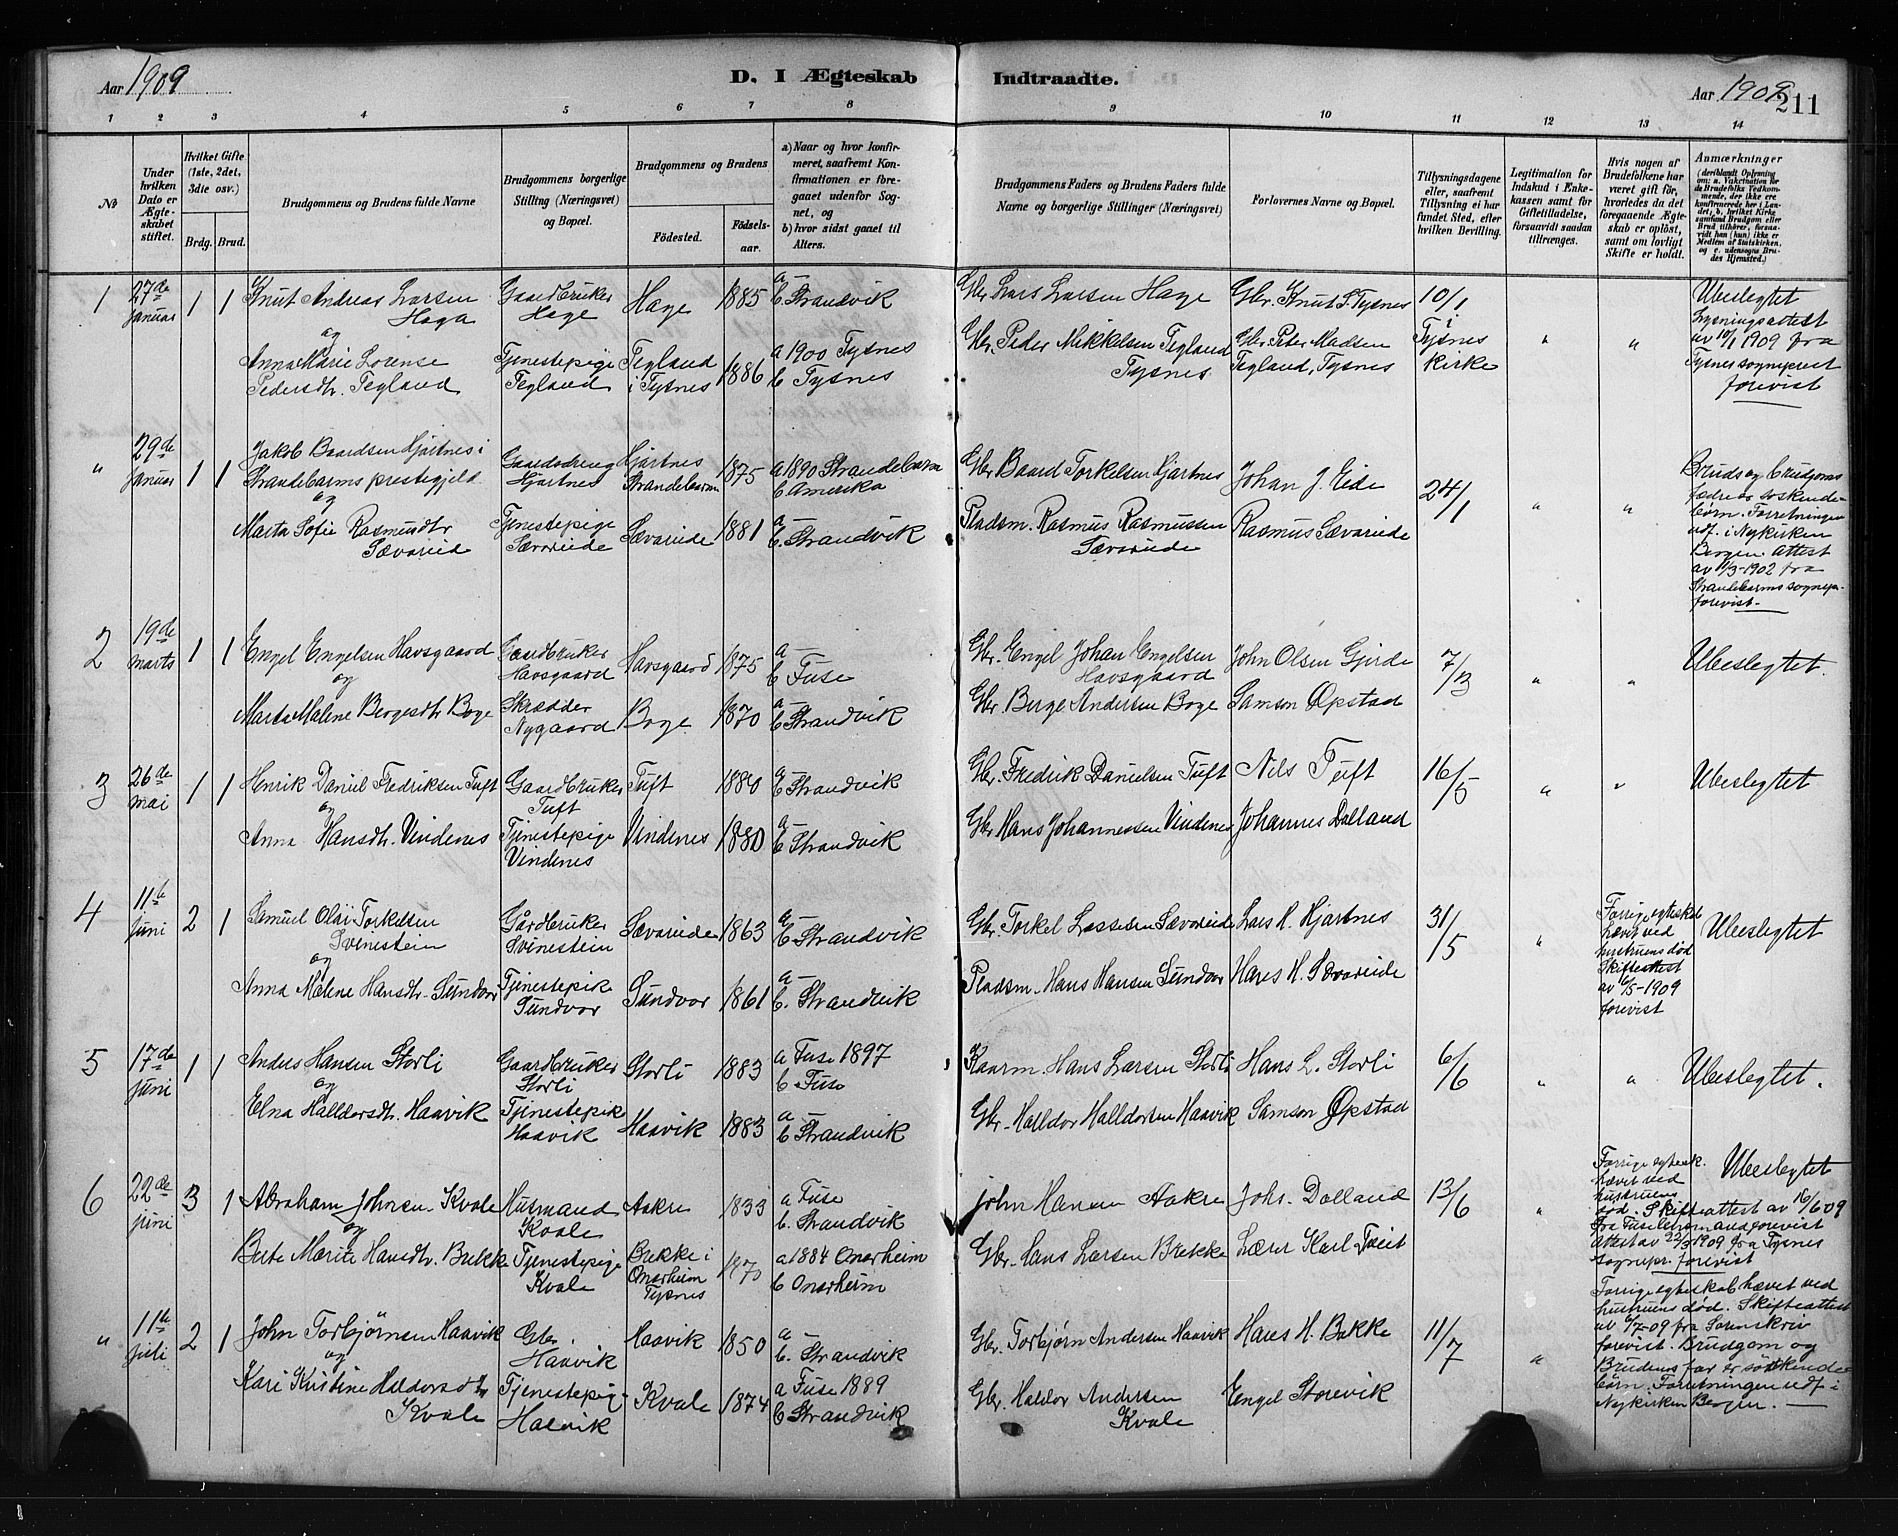 Aar 1909
D. I Ægteskab
Indtraadte.
Aar 1909
211
1 2 3 4 5 6 7 8 9 10 11 12 13 14
№
Under hvilken Dato er Ægteskabet stiftet.
Hvilket Gifte (1ste, 2det, 3die osv.)
Brdg. Brud.
Brudgommens og Brudens fulde Navne
Brudgommens borgerlige Stilling (Næringsvei) og Bopæl.
Brudgommens og Brudens
Fødested.
Fødselsaar.
a) Naar og hvor konfirmeret, saafremt Konfirmationen er foregaaet udenfor Sognet, og
b) hvor sidst gaaet til Alters.
Brudgommens Faders og Brudens Faders fulde Navne og borgerlige Stillinger (Næringsvei)
Forlovernes Navne og Bopæl.
Tillysningsdagene eller, saafremt Tillysning ei har fundet Sted, efter hvilken Bevilling.
Legitimation for Indskud i Enkekassen samt for Giftetilladelse, forsaavidt saadan tiltrænges.
Hvis nogen af Brudefolkene har været gift før, hvorledes da det foregaaende Ægteskab er opløst, samt om lovligt Skifte er holdt.
Anmærkninger
1 27de Januar 1 1
Knut Andreas Larsen Haga
og
Anna Marie Lorense Pedersdtr. Tegland
Gaardbruker Hage
Tjenestepige Tegland
Hage 1885
Tegland i Tysnes 1886
a —
b Strandvik
a 1900 Tysnes
b Tysnes
Gbr. Lars Larsen Hage
Gbr. Peder Mikkelsen Tegland Tysnes
Gbr. Knut S. Tysnes
Gbr. Peter Madsen Tegland, Tysnes
10/1 i Tysnes kirke
" "
Ubeslegtet
Lysningsattest av 10/1 1909 fra Tysnes sogneprest forevist
" 29de Januar 1 1
Jakob Baardsen Hjartnes i Strandebarms prestegjeld
og
Marta Sofie Rasmusdtr Sævareid
Gaardsdreng Hjartnes
Tjenestepige Sævareide
Hjartnes Strandebarm 1875
Sævareide 1881
a 1890 Strandebarm
b Amerika
a —
b. Strandvik
Gbr Baard Torkelsen Hjartnes
Pladsm. Rasmus Rasmussen Sævareide
Johan J. Eide
Rasmus Sævareide
24/1
" "
Bruds og brudgoms fædre er søskendebørn. Forretningen udf. i Nykirken Bergen. Attest av 11/3-1902 fra Strandebarms sognepr. forevist.
2 19de marts 1 1
Engel Engelsen Havsgaard
og
Marta Malene Bergesdtr Boge
Gaardbruker Havsgaard
Skrædder Nygaard
Havsgaard 1875
Boge 1870
a —
b Fuse
a —
b Strandvik
Gbr. Engel Johan Engelsen Havsgaard
Gbr Berge Andersen Boge
John Olsen Gjerde
Samson Øpstad
7/3
" "
Ubeslegtet.
3 26de mai 1 1
Henrik Daniel Fredriksen Tuft
og
Anna Hansdtr. Vindenes
Gaardbruker Tuft
Tjenestepige Vindenes
Tuft 1880
Vindenes 1880
a —
b Strandvik
a —
b Strandvik
Gbr. Fredrik Danielsen Tuft
Gbr Hans Johannessen Vindenes
Nils Tuft
Johannes Dalland
16/5
" "
Ubeslegtet
4 11te juni 2 1
Samuel Olai Torkelsen Svinestein
og
Anna Malene Hansdtr. Sundvor
Gårdbruker Svinestein
Tjenestepik Sundvor
Sævareide 1863
Sundvor 1861
a —
b Strandvik
a —
b. Strandvik
Gbr. Torkel Lassesen Sævareide
Pladsm. Hans Hansen Sundvor
Lars H. Hjartnes
Hans H. Sævareide
31/5
"
Forrige egteskab hævet ved hustruens død Skifteattest av 6/5-1909 forevist
Ubeslegtet
5 17de juni 1 1
Anders Hansen Storli
og
Elna Halldorsdtr. Haavik
Gaardbruker Storli
Tjenestepik Haavik
Storli 1883
Haavik 1883
a Fuse 1897
b Fuse
a —
b Strandvik
Kaarm. Hans Larsen Storli
Gbr. Halldor Halldorsen Haavik
Hans L. Storli
Samson Øpstad
6/6
" "
Ubeslegtet.
6 22de juni 3 1
Abraham Johnsen Kvale
og
Berte Marie Hansdtr. Bekke
Husmand Kvale
Tjenestepige Kvale
Aakre 1833
Bekke i Onarheim Tysnes
a Fuse
b. Strandvik
a 1884 Onarheim
b Onarheim
John Hansen Aakre
Gbr. Hans Larsen Brekke
Johs. Dalland
Lærer Karl Tveit
13/6
"
Forrige egtesk. hævet ved hustruens død. Skifteattest av 16/6 09 fra Fuse lensmand forevist attest av 22/3 1909 fra Tysnes sognepr. forevist
Ubeslegtet
" 11te juli 2 1
John Torbjørnsen Haavik
og
Kari Kristine Haldorsdtr Kvale
Gbr. Haavik
Tjenestepig. Halvik
Haavik 1850
Kvale 1874
a —
b. Strandvik
a Fuse 1889
b Strandvik
Gbr. Torbjørn Andersen Haavik
Gbr. Haldor Andersen Kvale
Hans H. Bakke
Engel Storevik
11/7
"
Forrige egteskab hævet ved hustruens død. Skifteattest av 6/7-09 fra Sorenskriv forevist. Brudgom og Brudens far er søskendebørn. Forretningen udf. i Nykirken Bergen. —